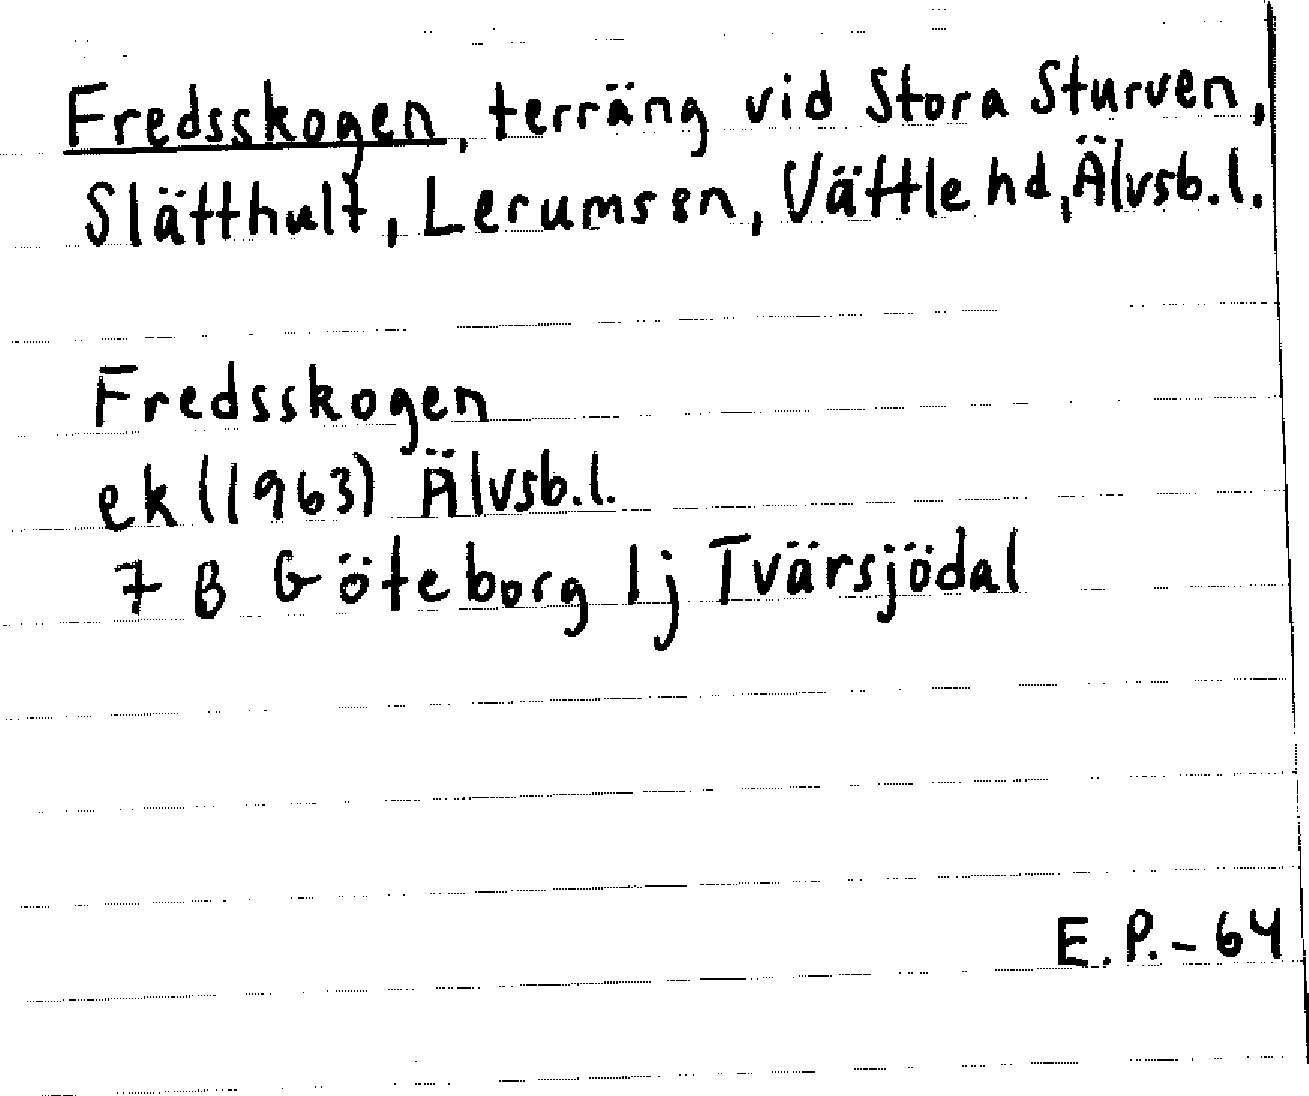 Fredsskogen, terräng vid Stora Sturven,
Slätthult, Lerums sn, Vättle hd, Älvsb.l.
Fredsskogen
ek (1963) Älvsb.l.
7 B Göteborg 1j Tvärsjödal
E.P.-64